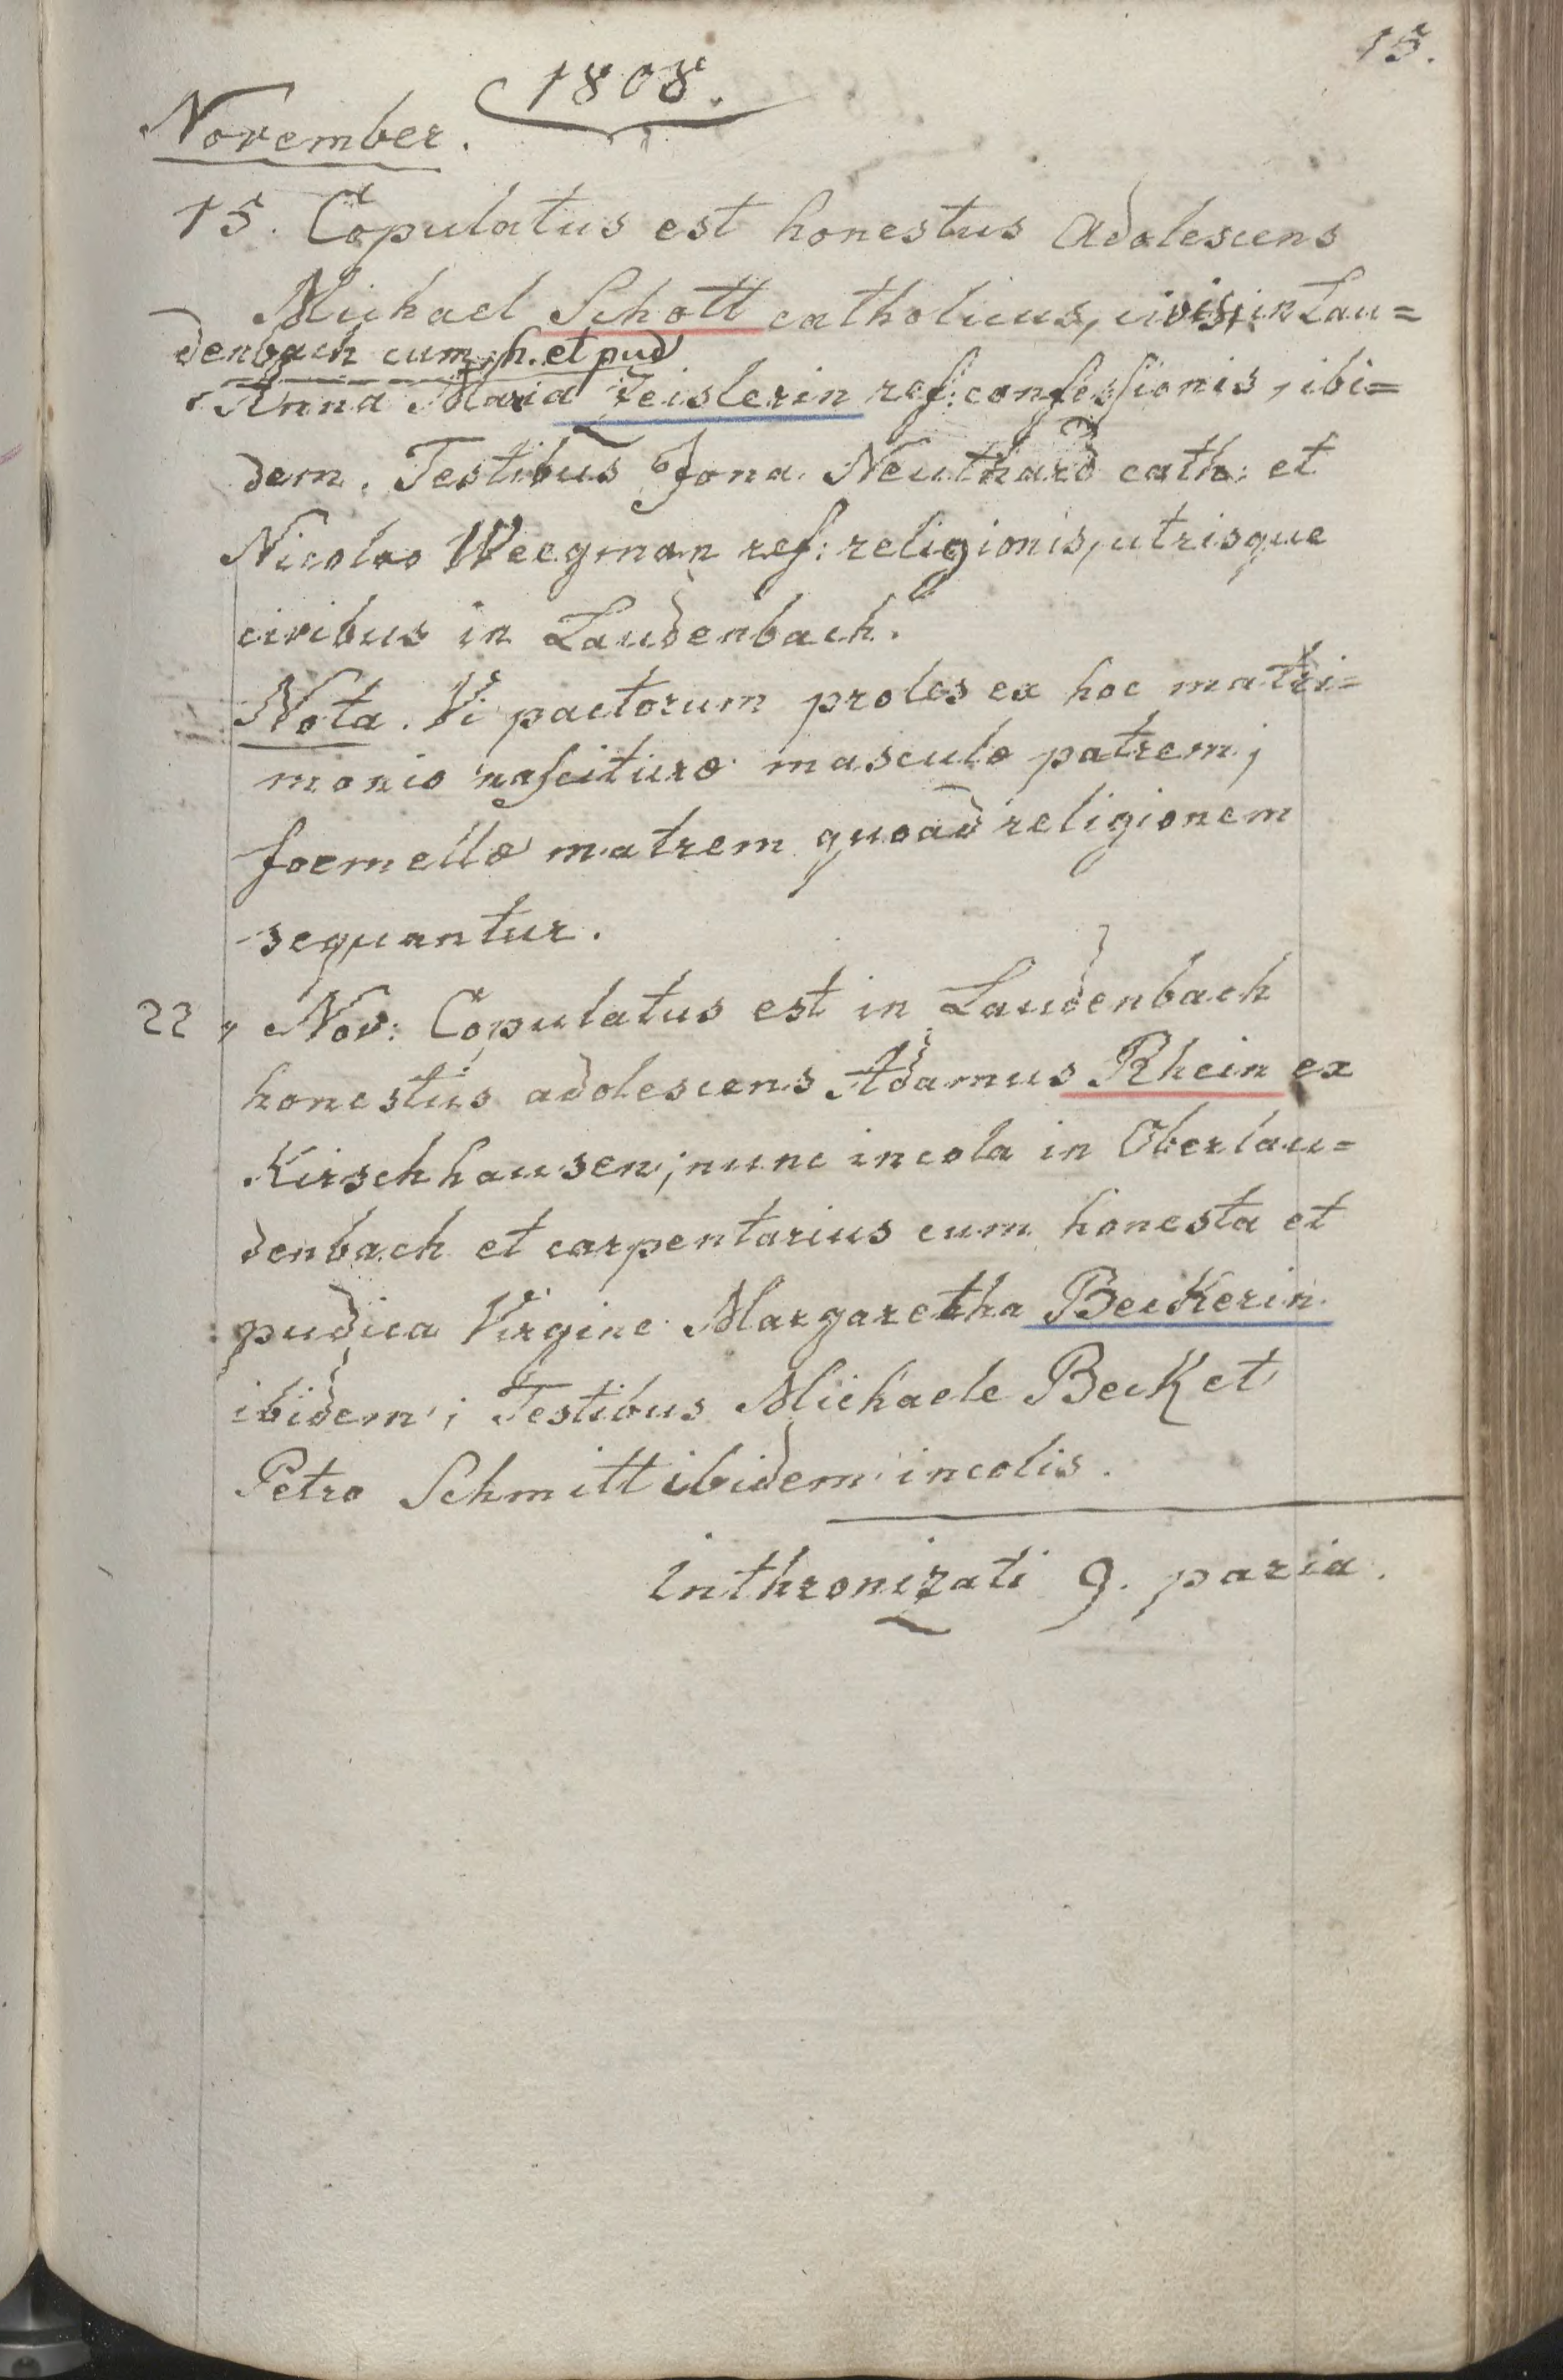 15.
1808.
November.
15. Copulatus est honestus adolescens
Michael Schott catholicus, civis, in Lau=
denbach cum h. et pud
Anna Maria Zeislerin ref: confessionis, ibi=
dem. Testibus Jona Neuthard cath: et
Nicolao Weegman ref: religionis, utrisque
civibus in Laudenbach.
Nota. Vi pactorum proles ex hoc matri=
monio nascituræ masculæ patrem,
foemellæ matrem quoad religionem
sequantur.
22, Nov: Copulatus est in Laudenbach
honestus adolescens Adamus Rhein ex
Kirschhausen; nunc incola in Oberlau=
denbach et carpentarius cum honesta et
pudica Virgine Margaretha Beckerin
ibidem; Testibus Michaele Beck et
Petro Schmitt ibidem incolis.
inthronizati 9. paria.